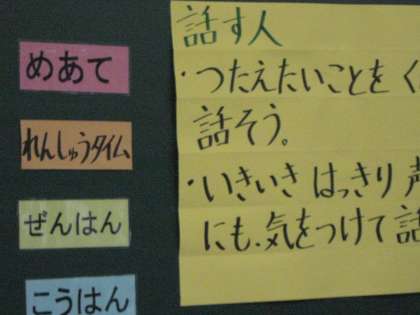 めあて
れんしゅうタイム
ぜんはん
こうはん
話す人
・つたえたいことをく
話そう。
・いきいきはっきり声
にも、気をつけて話